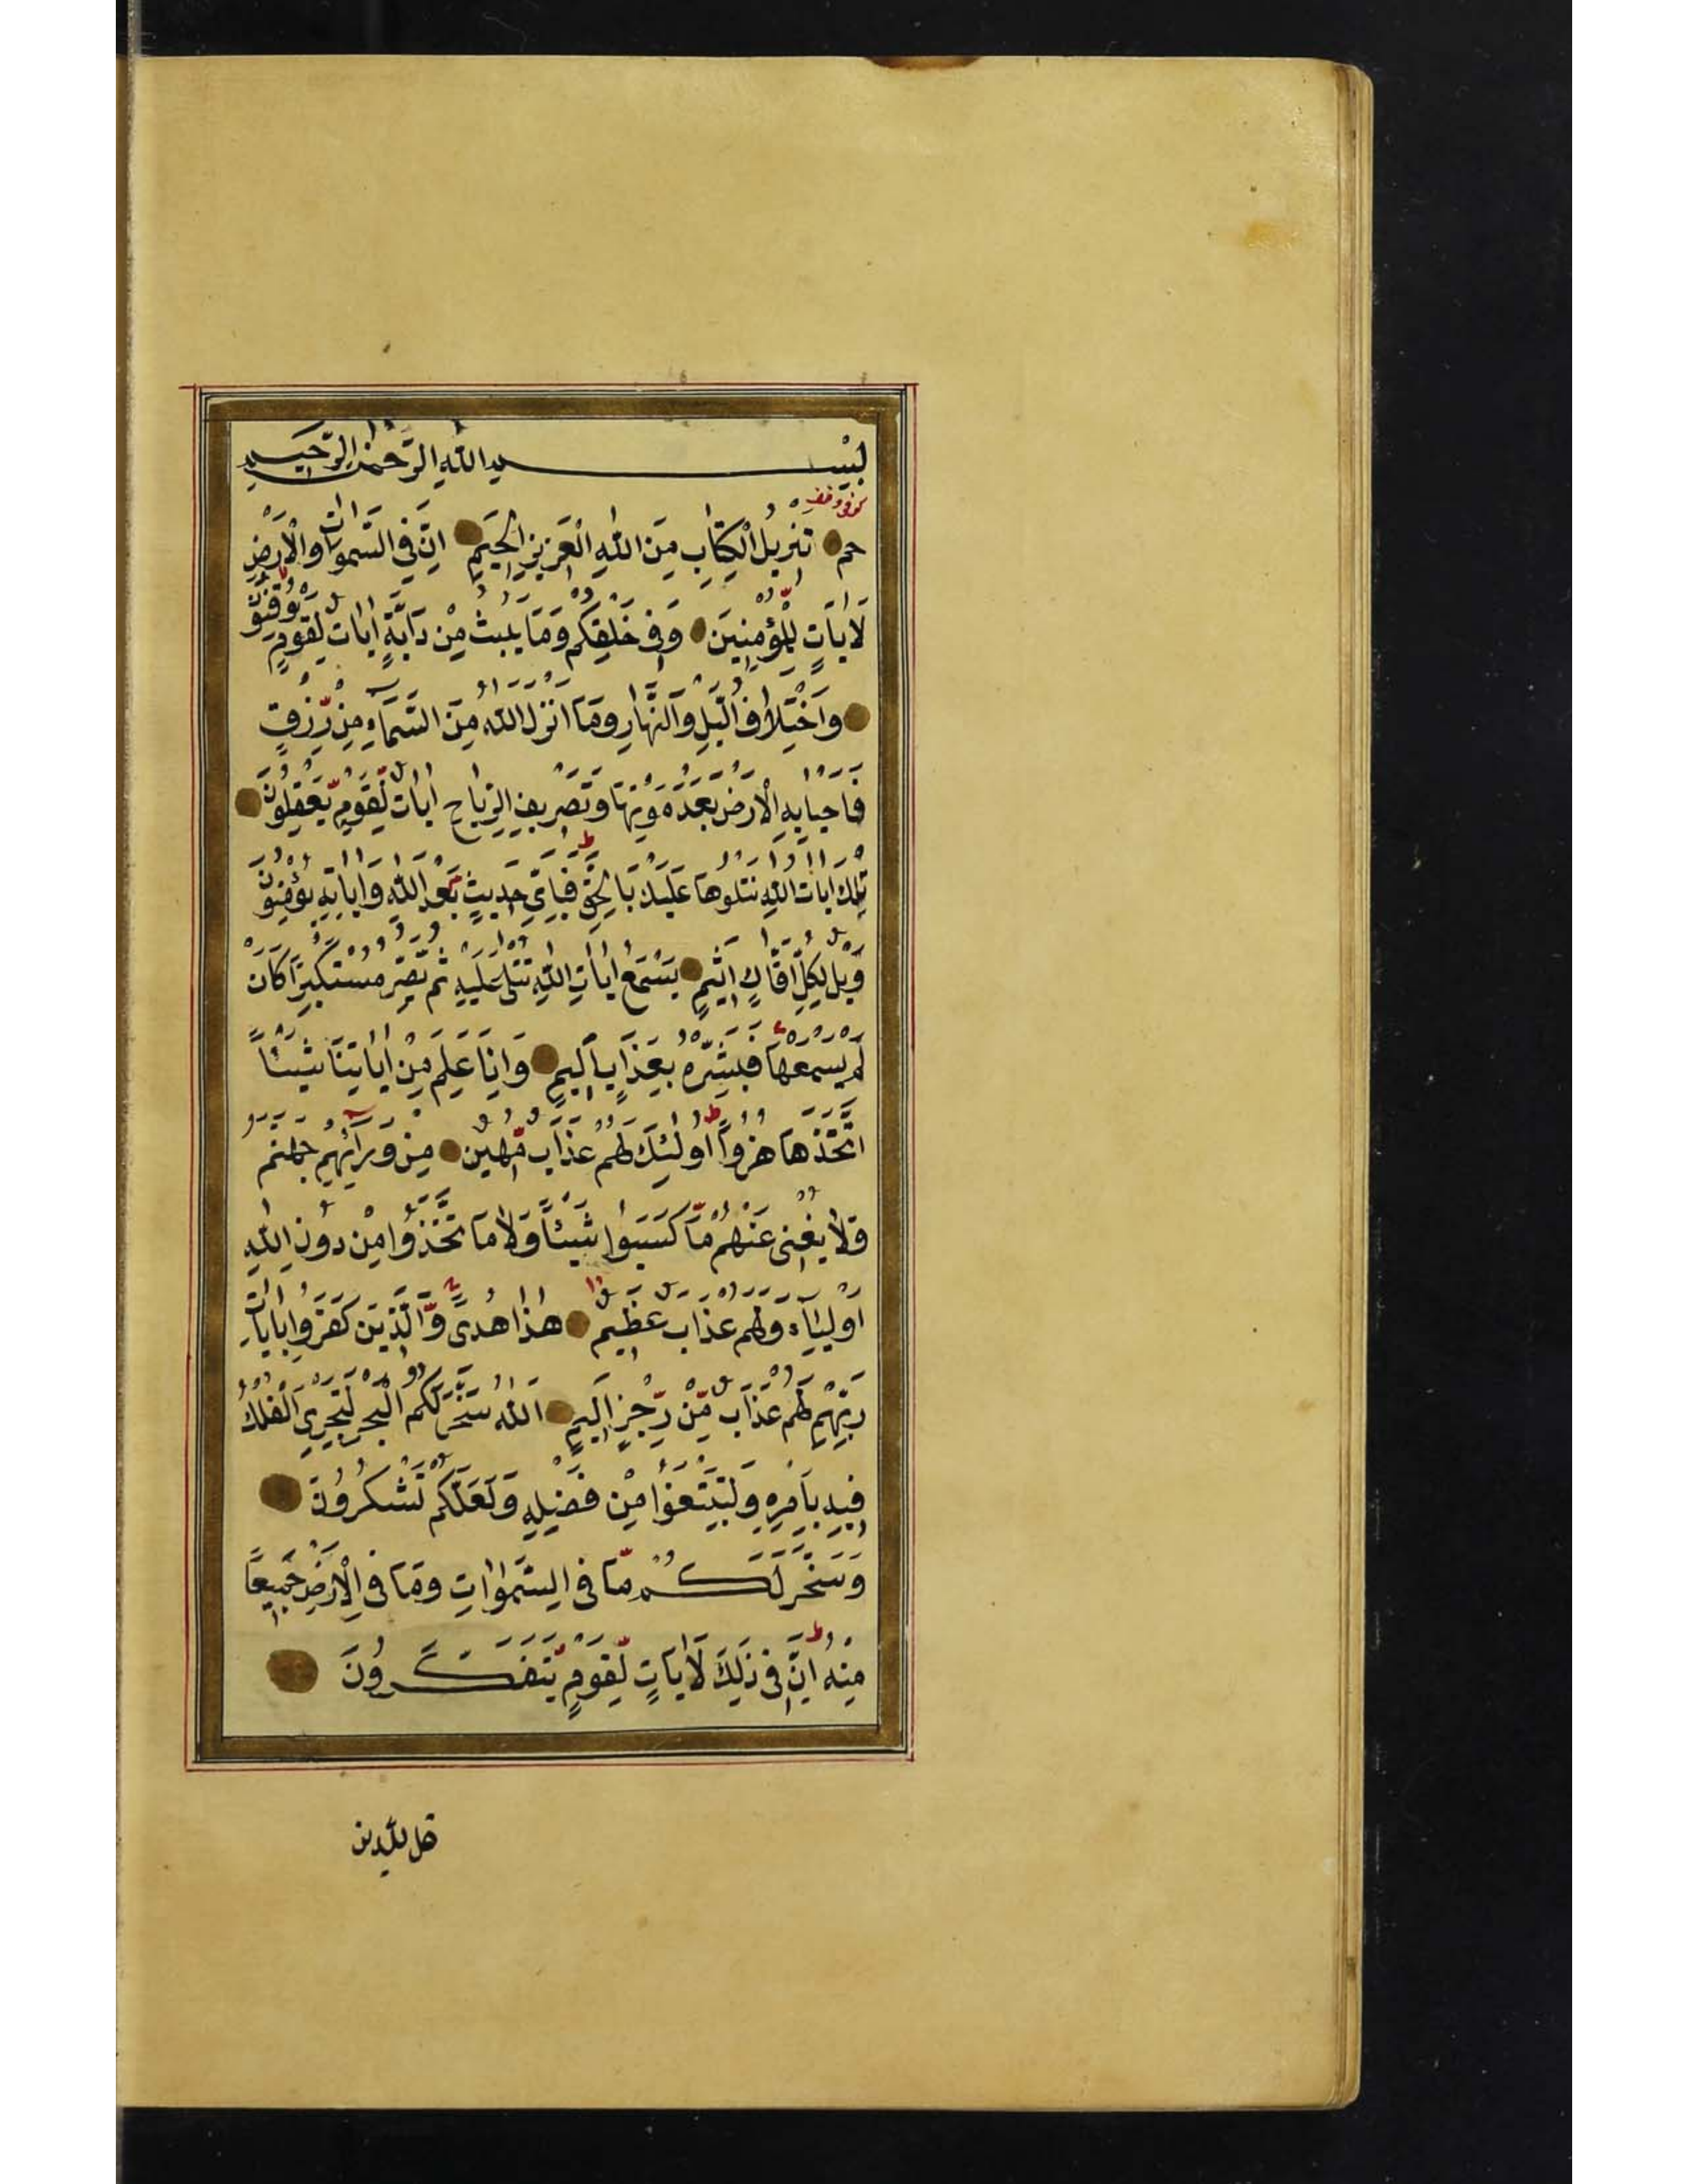 بِسْمِ اللّٰهِ الرَّحْمٰنِ الرَّحِيمِ
كوفى وقف
حم تَنْزِيلُ الْكِتَابِ مِنَ اللّٰهِ الْعَزِيزِ الْحَكِيمِ اِنَّ فِي السَّمٰوَاتِ وَالْاَرْضِ
لَاٰيَاتٍ لِلْمُؤْمِنِينَ وَفِي خَلْقِكُمْ وَمَا يَبُثُّ مِنْ دَابَّةٍ اٰيَاتٌ لِقَوْمٍ يُوقِنُونَ
وَاخْتِلَافِ الَّيْلِ وَالنَّهَارِ وَمَا اَنْزَلَ اللّٰهُ مِنَ السَّمَآءِ مِنْ رِّزْقٍ
فَاَحْيَا بِهِ الْاَرْضَ بَعْدَ مَوْتِهَا وَتَصْرِيفِ الرِّيَاحِ اٰيَاتٌ لِّقَوْمٍ يَّعْقِلُونَ
تِلْكَ اٰيَاتُ اللّٰهِ نَتْلُوهَا عَلَيْكَ بِالْحَقِّ فَبِاَىِّ حَدِيثٍ بَعْدَ اللّٰهِ وَاٰيَاتِهِ يُؤْمِنُونَ
وَيْلٌ لِكُلِّ اَفَّاكٍ اَثِيمٍ يَسْمَعُ اٰيَاتِ اللّٰهِ تُتْلٰى عَلَيْهِ ثُمَّ يُصِرُّ مُسْتَكْبِرًا كَاَنْ
لَمْ يَسْمَعْهَا فَبَشِّرْهُ بِعَذَابٍ اَلِيمٍ وَاِذَا عَلِمَ مِنْ اٰيَاتِنَا شَيْئًا
اتَّخَذَهَا هُزُوًا اُولٰئِكَ لَهُمْ عَذَابٌ مُّهِينٌ مِنْ وَرَآئِهِمْ جَهَنَّمُ
وَلَا يُغْنِى عَنْهُمْ مَّا كَسَبُوا شَيْئًا وَلَا مَا تَّخَذُوا مِنْ دُونِ اللّٰهِ
اَوْلِيَآءَ وَلَهُمْ عَذَابٌ عَظِيمٌ هٰذَا هُدًى وَّالَّذِينَ كَفَرُوا بِاٰيَاتِ
رَبِّهِمْ لَهُمْ عَذَابٌ مِّنْ رِّجْزٍ اَلِيمٍ اَللّٰهُ سَخَّرَ لَكُمُ الْبَحْرَ لِتَجْرِىَ الْفُلْكُ
فِيهِ بِاَمْرِهِ وَلِتَبْتَغُوا مِنْ فَضْلِهِ وَلَعَلَّكُمْ تَشْكُرُونَ
وَسَخَّرَ لَكُمْ مَّا فِى السَّمٰوٰاتِ وَمَا فِى الْاَرْضِ جَمِيعًا
مِنْهُ اِنَّ فِى ذٰلِكَ لَاٰيَاتٍ لِّقَوْمٍ يَّتَفَكَّرُونَ
قل للذين